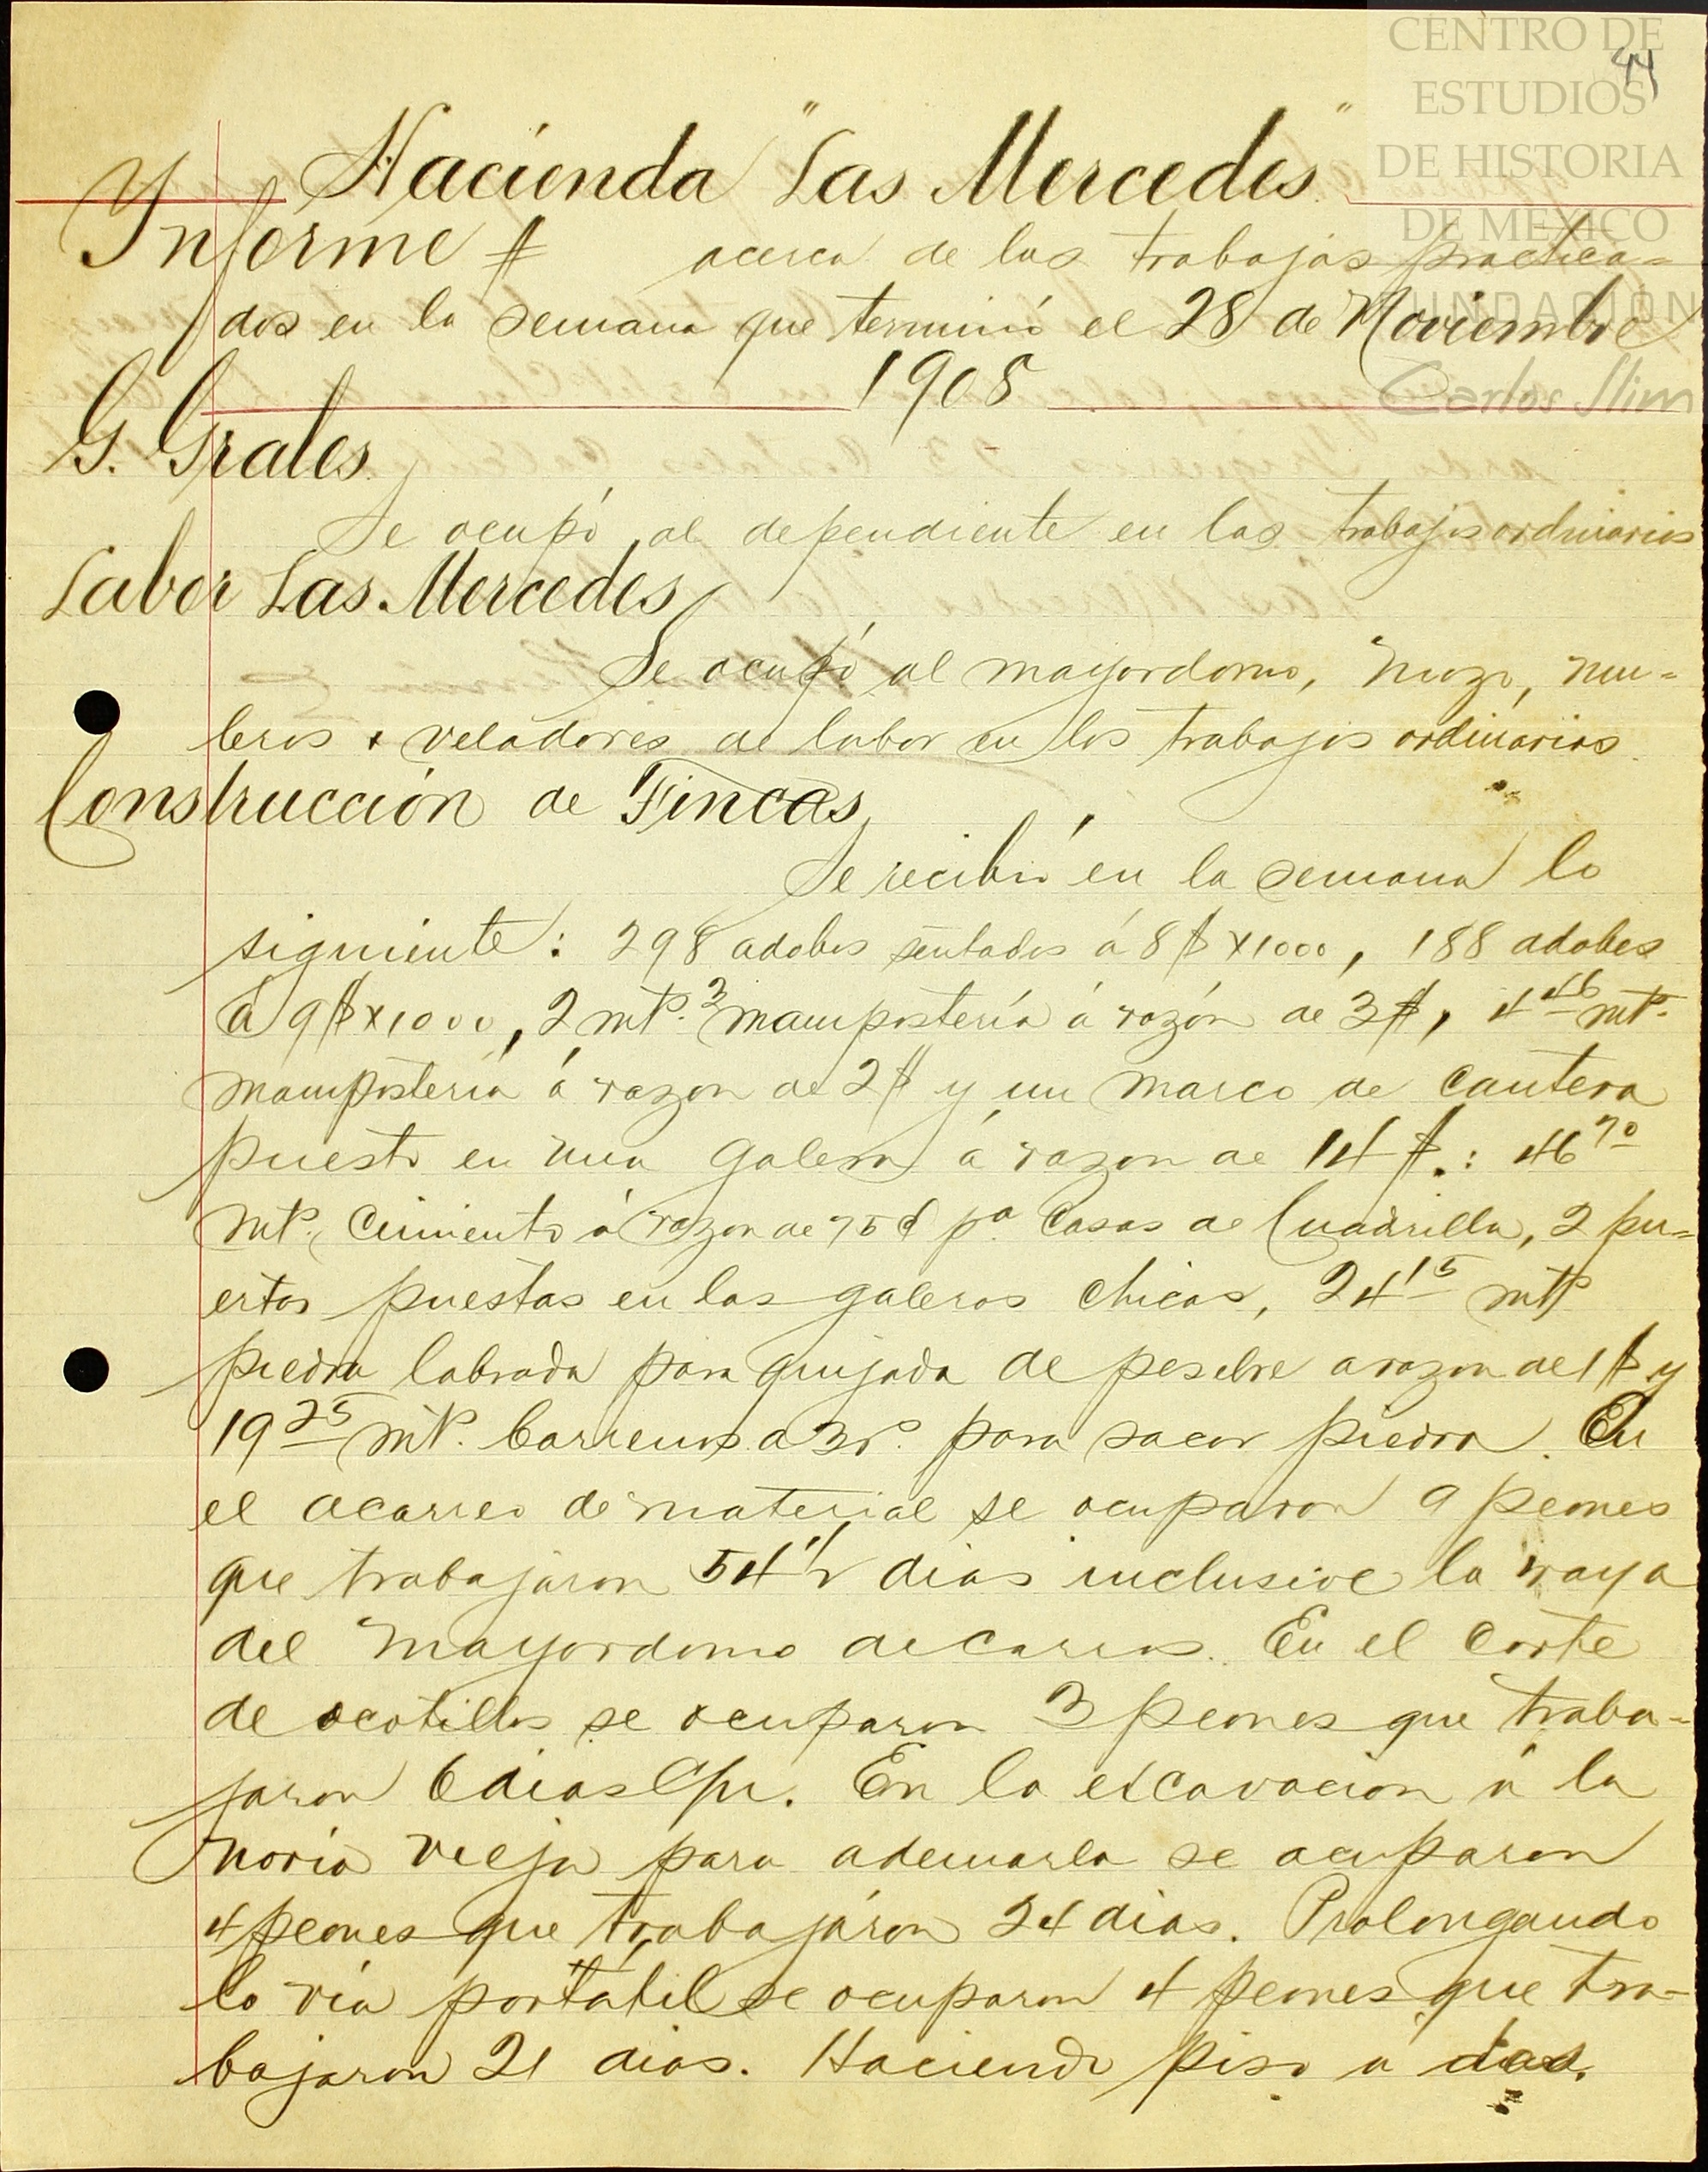 CENTRO DE
ESTUDIOS
DE HISTORIA
DE MEXICO
FUNDACIÓN
Carlos Slim
44
Hacienda "Las Mercedes"
Informe # acerca de los trabajos practica=
dos en la semana que terminó el 28 de Noviembre
1908
G. Grales.
Se ocupó al dependiente en los trabajos ordinarios
Labor Las Mercedes
Se ocupó al mayordomo, mozo, mu=
leros y veladores de labor en los trabajos ordinarios.
Construcción de Fincas
Se recibió en la semana lo
siguiente: 298 adobes sentados á 8$ x 1000, 188 adobes
á 9$ x 1000, 2 mts.³ mampostería á razón de 3$, 4 46 mts.
mampostería á razon de 2$ y un marco de cantera
puesto en una galera á razon de 14 $.: 46 70
mts. Cimiento á razon de 75 ¢ pa. Casas de Cuadrilla, 2 pu=
ertas puestas en las galeras chicas, 24 15 mts
piedra labrada para quijada de pesebre a razon de 1$ y
19 25 mts. barrenos a 3r. para sacar piedra. En
el acarreo de material se ocuparon 9 peones
que trabajaron 54 1/2 dias inclusive la raya
del mayordomo de carros. En el corte
de ocotillos se ocuparon 3 peones que traba=
jaron 6 dias. En la excavacion á la
noria vieja para ademarla se ocuparon
4 peones que trabajáron 24 dias. Prolongando
la vía portátil se ocuparon 4 peones que tra=
bajaron 21 dias. Haciendo piso a dos.